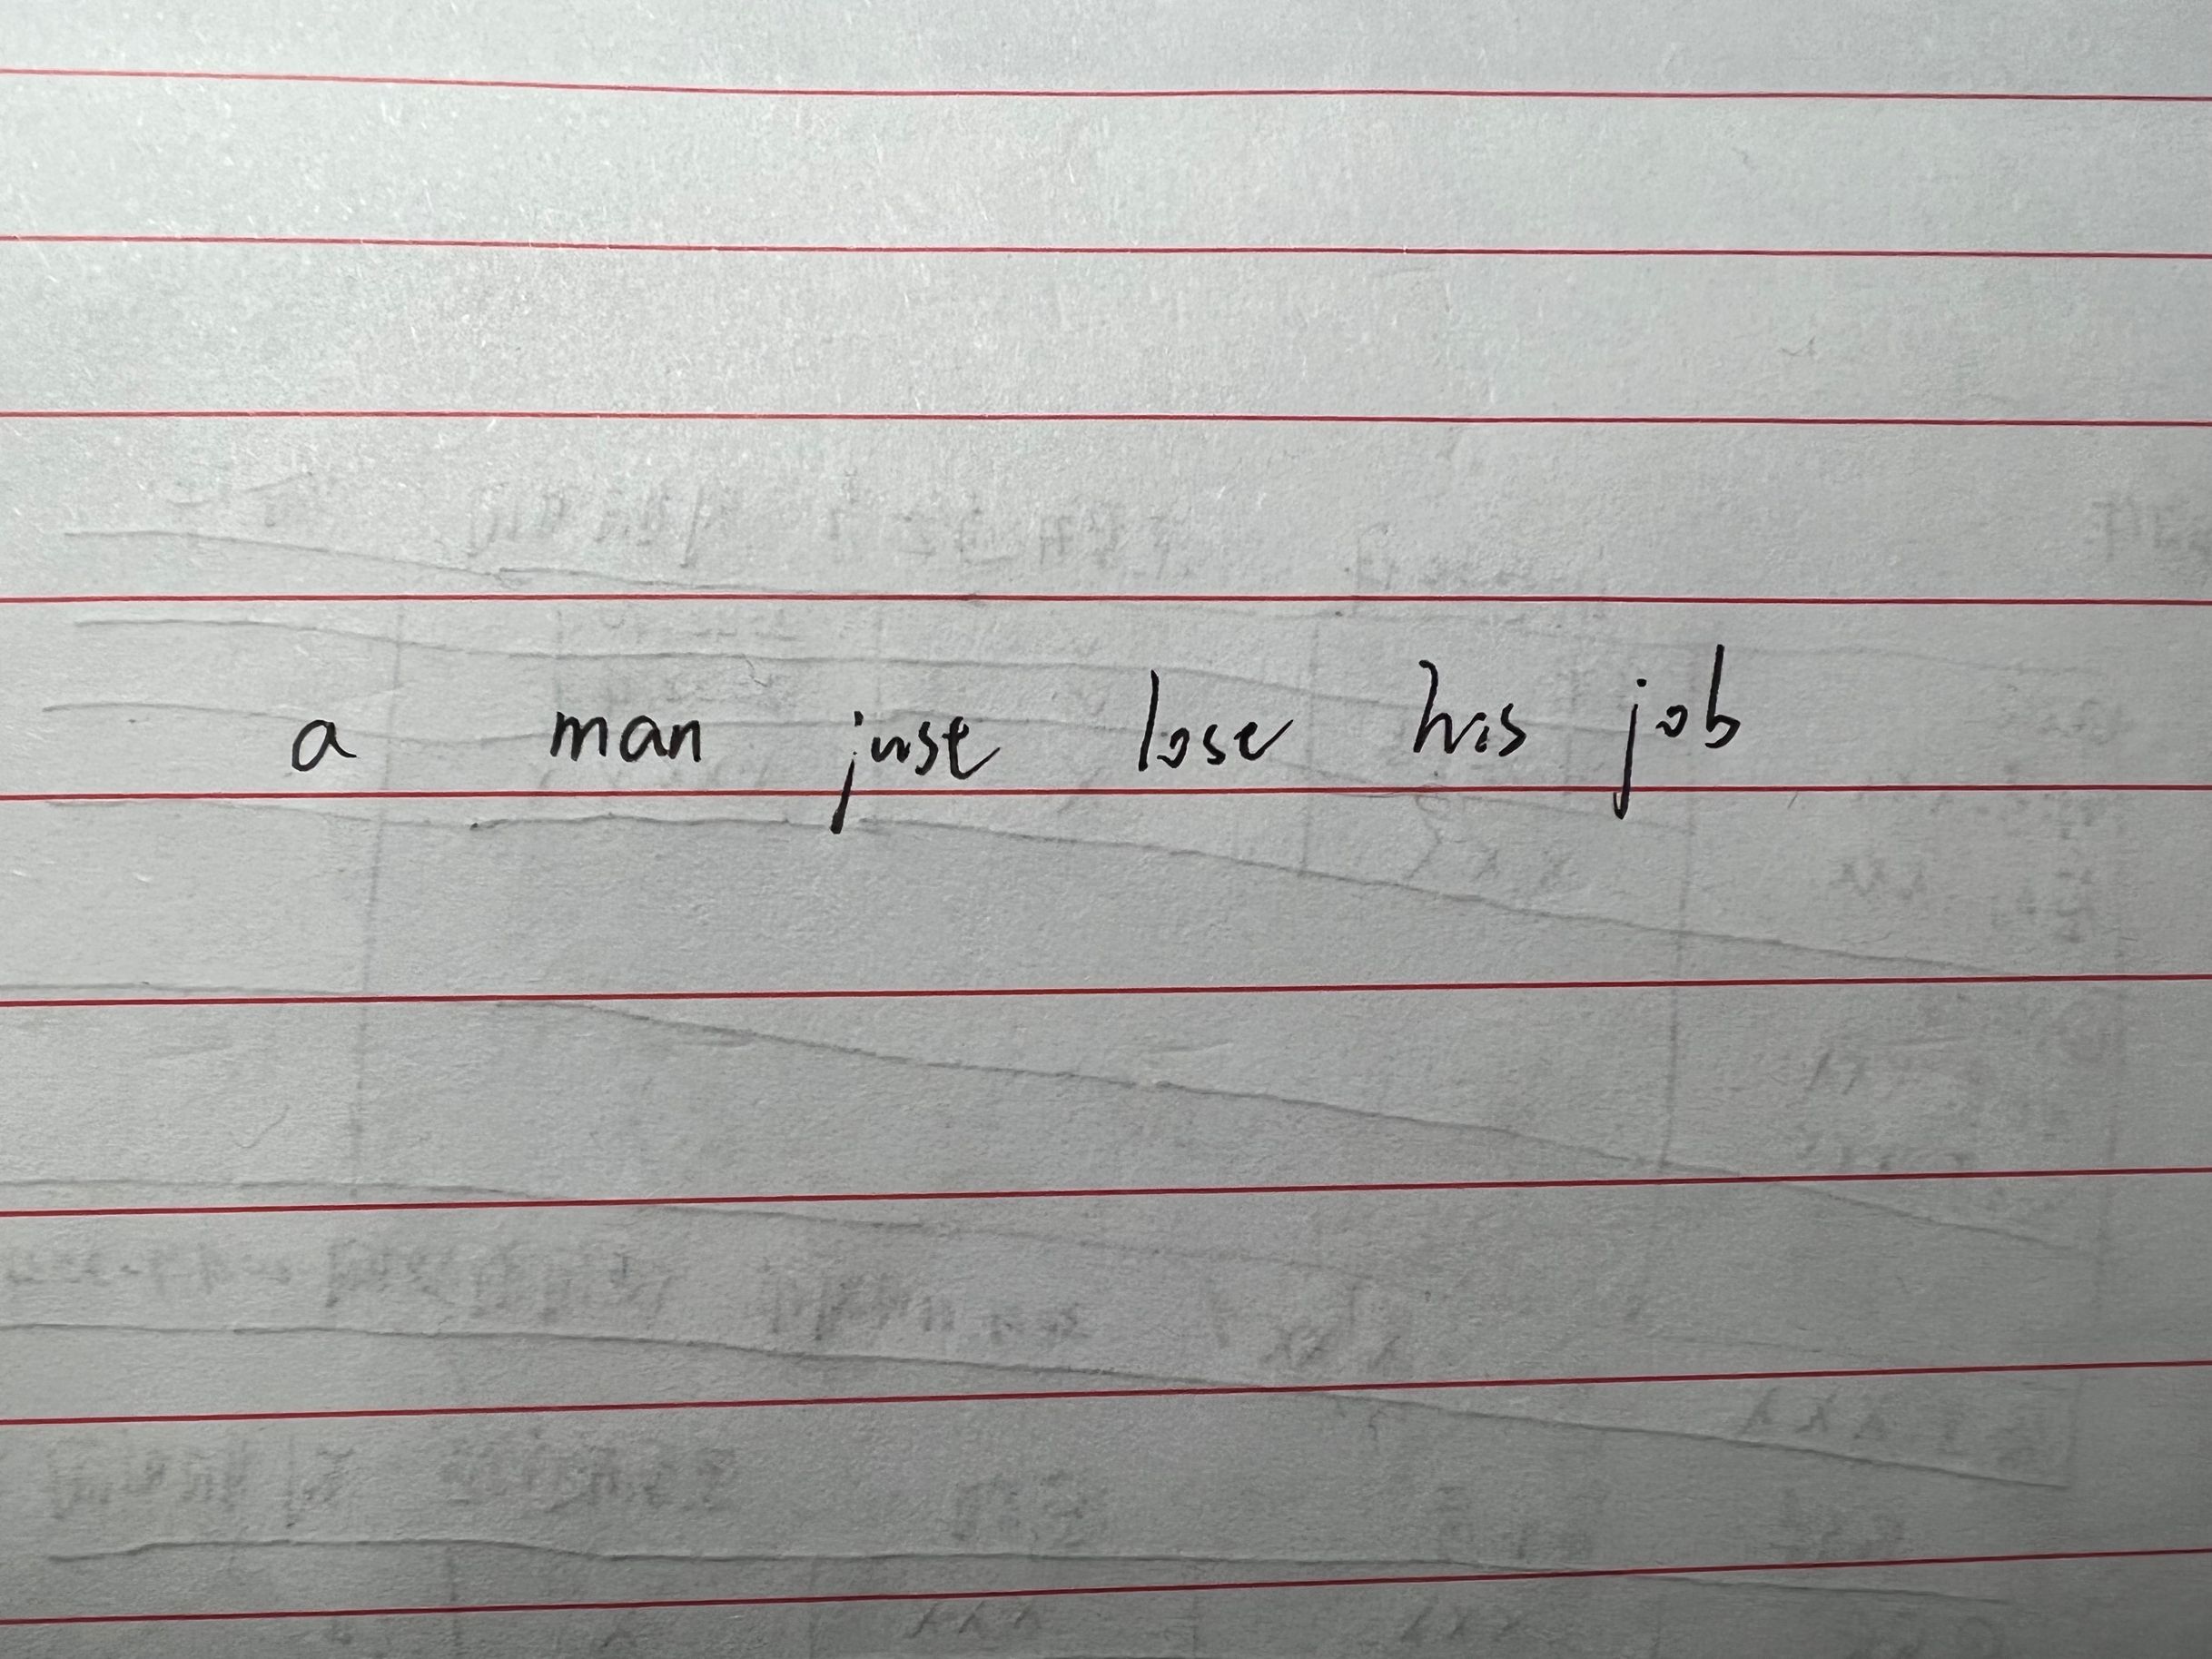 a man just lose his job